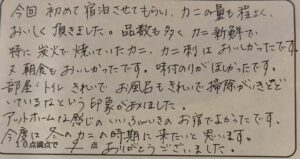 今回 初めて宿泊させてもらい、カニの量も程よく、
おいしく頂きました。品数も多く、カニ新鮮で、
特に炭火で焼いていたカニ、カニ刺はおいしかったです。
又朝食もおいしかったです。味付のりがほしかったです。
部屋、トイレ きれいで お風呂もきれいで 掃除がいきとど
いているなという印象がありました。
アットホームな感じの いい お宿でよかったです。
今度は 冬のカニの時期に来たいと思います。
10点満点で 9 点 ありがとうございました。